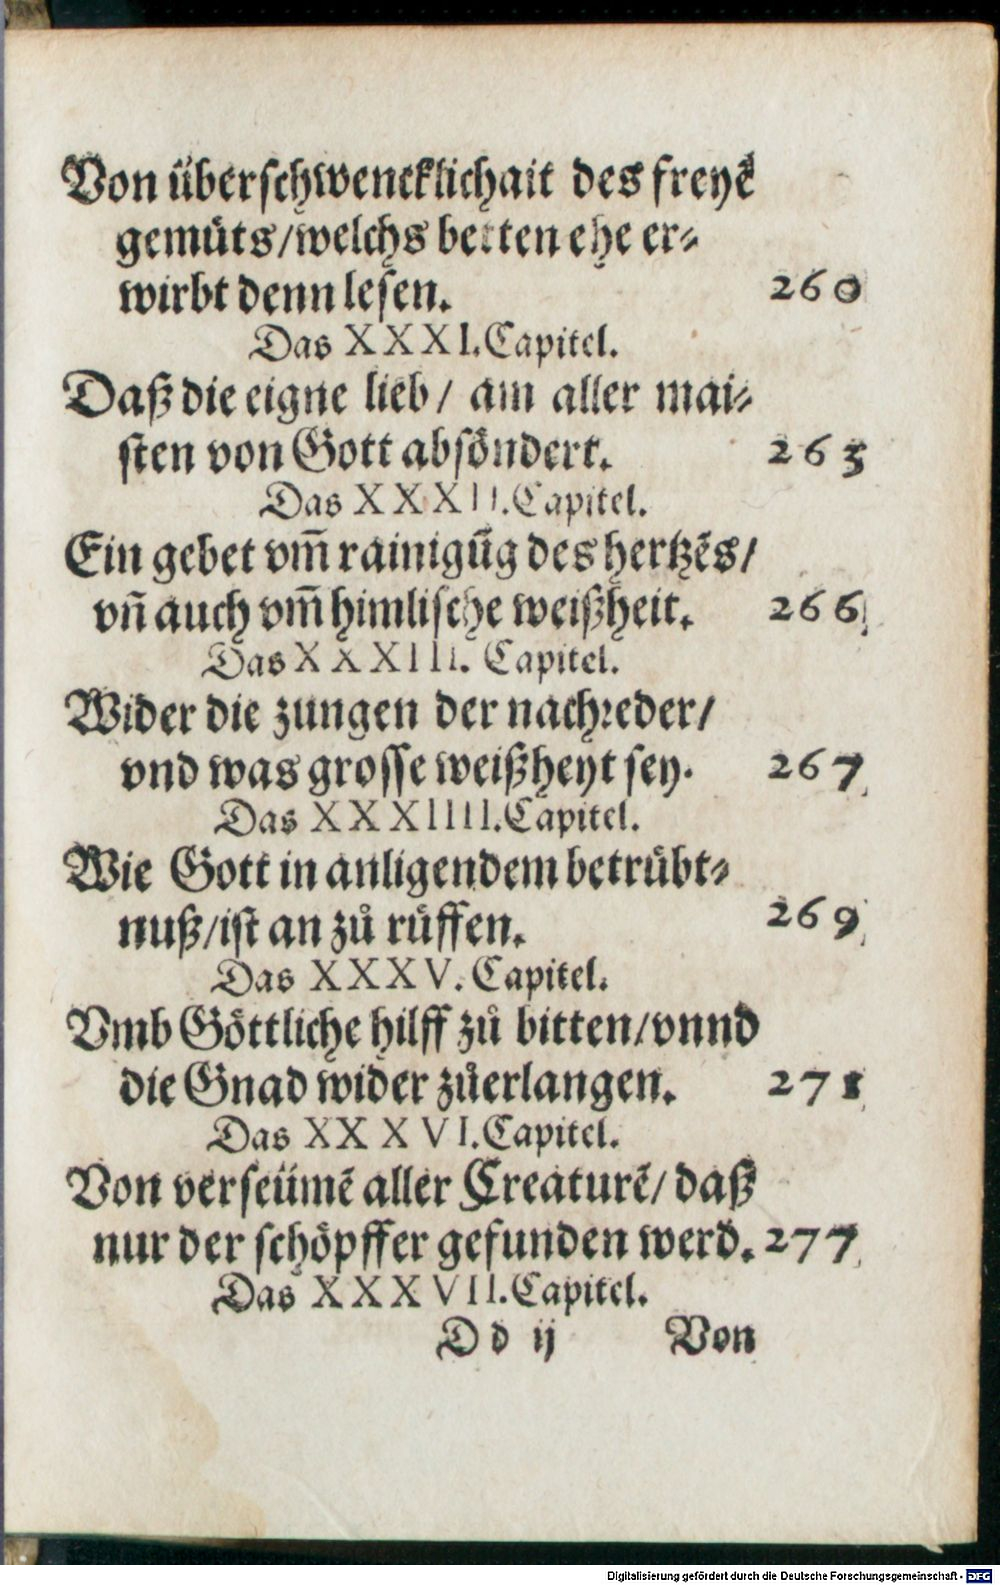 Von überschwencklichait des freyẽ
gemüts/welchs betten ehe er⸗
wirbt denn lesen. 260
Das XXXI. Capitel.
Daß die eigne lieb/ am aller mai⸗
sten von Gott absöndert. 263
Das XXXII. Capitel.
Ein gebet vm̃ rainigũg des hertzẽs/
vñ auch vm̃ himlische weißheit. 266
Das XXXIII. Capitel.
Wider die zungen der nachreder/
vnd was grosse weißheyt sey. 267
Das XXXIIII. Capitel.
Wie Gott in anligendem betrübt⸗
nuß/ist an zů rüffen. 269
Das XXXV. Capitel.
Vmb Göttliche hilff zů bitten/vnnd
die Gnad wider zůerlangen. 271
Das XXXVI. Capitel.
Von verseümẽ aller Creaturẽ/daß
nur der schöpffer gefunden werd. 277
Das XXXVII. Capitel.
D d ij Von
Digitalisierung gefördert durch die Deutsche Forschungsgemeinschaft - DFG